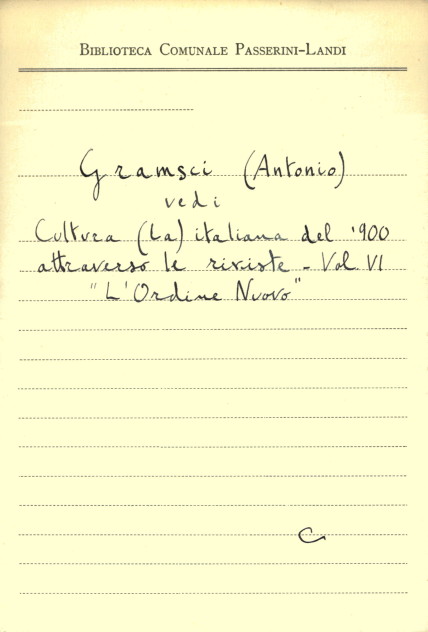 BIBLIOTECA COMUNALE PASSERINI-LANDI
Gramsci (Antonio)
vedi
Cultura (La) italiana del '900
attraverso le riviste - Vol. VI
"L'Ordine Nuovo"
C